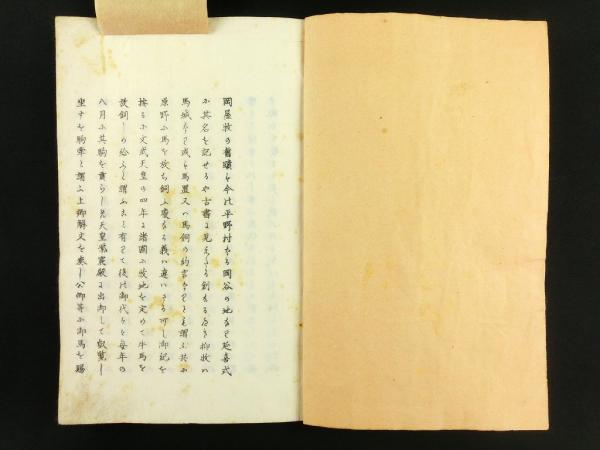 岡屋牧の舊蹟は今の平野村なる岡谷の地なり延喜式
に其名を記せるや古書に見えたる創なる可き抑牧は
馬城なり或は馬置又は馬飼の約言なりとも謂ふ共に
原野に馬を放ち飼ふ處なる義に違いさる可し御記を
按るに文武天皇の四年に諸國に牧地を定めて牛馬を
放飼しめ給ふと謂ふこと有りて後は御代々々毎年の
八月に其駒を貢らしめ天皇紫宸殿に出御して叡覧し
坐すを駒牽と謂ふ上卿解文を奏し公卿等に御馬を賜